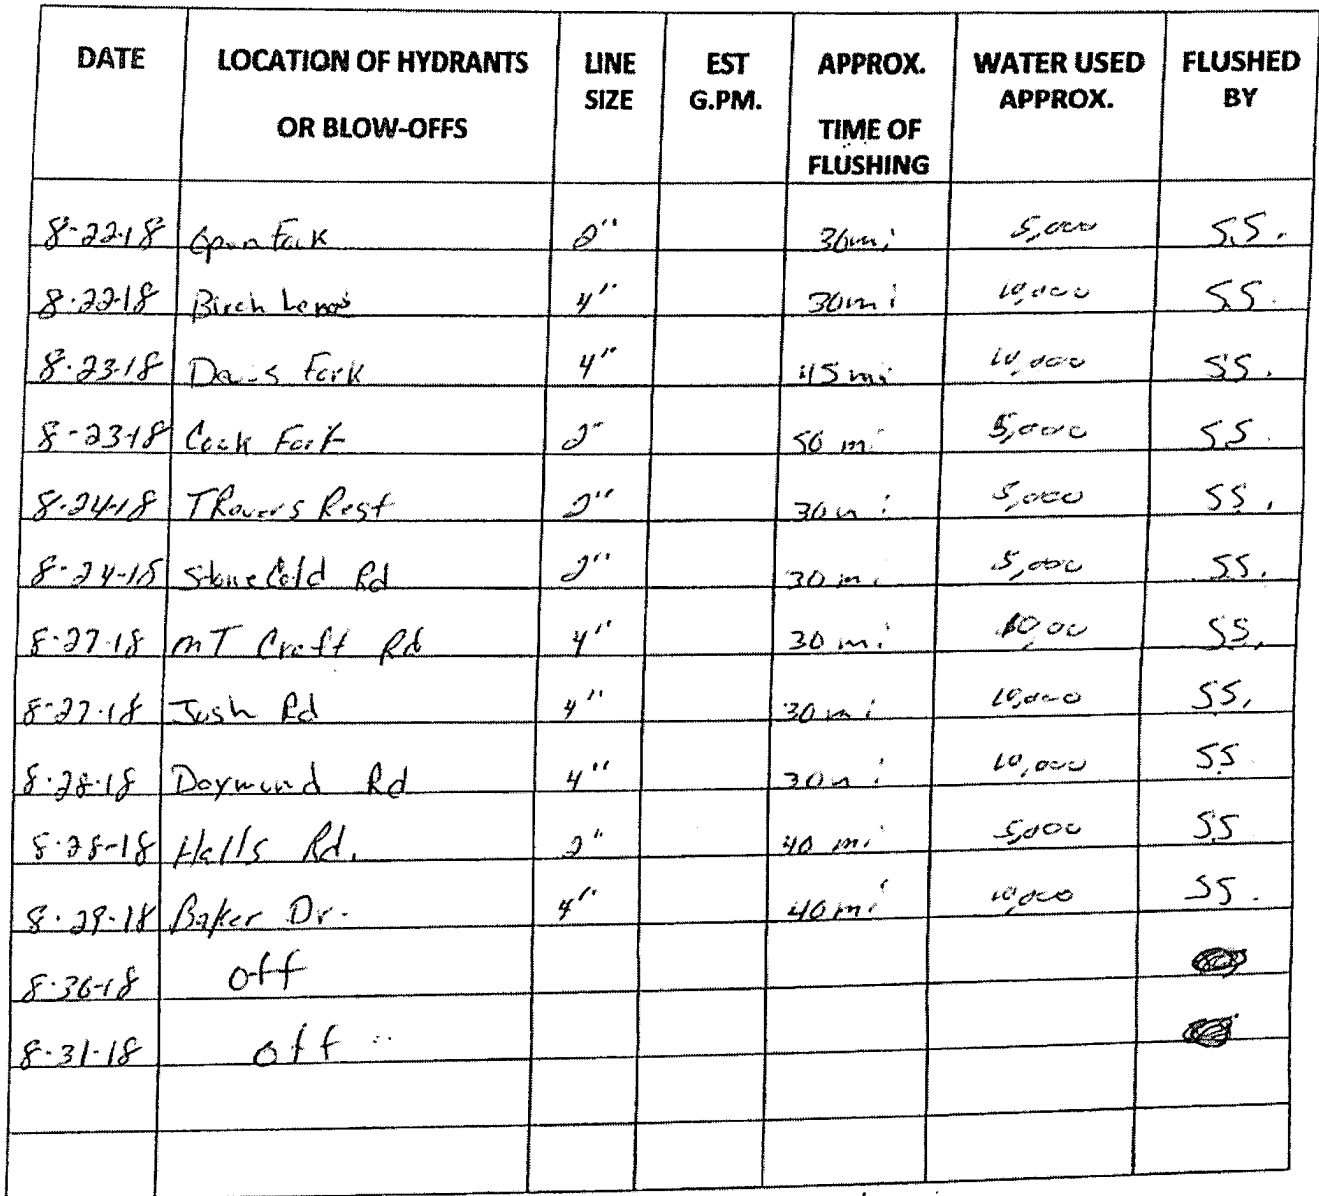 DATE LOCATION OF HYDRANTS OR BLOW-OFFS LINE SIZE EST G.PM. APPROX. TIME OF FLUSHING WATER USED APPROX. FLUSHED BY
8-22-18 Fork 2" 30 mi 5,000 S.S.
8-22-18 Birch 4" 30 mi 10,000 SS.
8-23-18 Davis Fork 4" 45 mi 10,000 SS.
8-23-18 Cook Fork 2" 50 mi 5,000 SS.
8-24-18 Rest 2" 30 mi 5,000 SS.
8-24-18 Stone Cold Rd 2" 30 mi 5,000 SS.
8-27-18 mT Craft Rd 4" 30 mi 10,00 SS.
8-27-18 Josh Rd 4" 30 mi 10,000 SS.
8-28-18 Daymond Rd 4" 30 mi 10,000 SS
8-28-18 Halls Rd. 2" 40 mi 5,000 SS
8-29-18 Baker Dr. 4" 40 mi 10,000 SS.
8-30-18 off
8-31-18 off